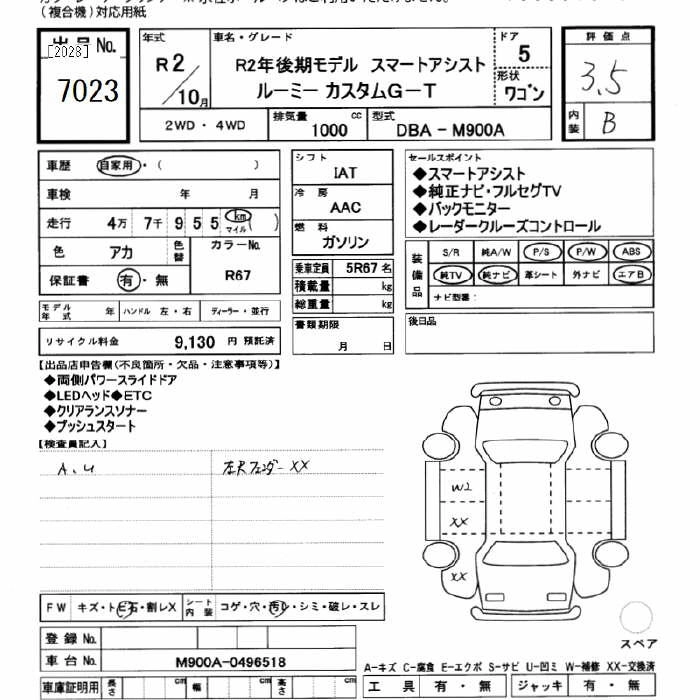 (複合機)対応用紙
出品No.
[2023]
7023
年式
R2/10月
車名・グレード
R2年後期モデル スマートアシスト
ルーミー カスタムG-T
ドア
5
形状
ワゴン
2WD・4WD
排気量 1000 cc
型式 DBA-M900A
評価点
3.5
内装 B
車歴 自家用・( )
車検 年 月
走行 4万 7千 9 5 5 km マイル ( )
色 アカ 色替
カラーNo.
R67
保証書 有・無
モデル年式 年 ハンドル 左・右 ディーラー・並行
リサイクル料金 9,130 円 預託済
シフト
IAT
冷房
AAC
燃料
ガソリン
乗車定員 5R67 名
積載量 kg
総重量 kg
書類期限
月 日
セールスポイント
◆スマートアシスト
◆純正ナビ・フルセグTV
◆バックモニター
◆レーダークルーズコントロール
装備品
S/R 純A/W P/S P/W ABS
純TV 純ナビ 革シート 外ナビ エアB
ナビ型番:
後日品
【出品店申告欄(不良箇所・欠品・注意事項等)】
◆両側パワースライドドア
◆LEDヘッド◆ETC
◆クリアランスソナー
◆プッシュスタート
【検査員記入】
A、U
左Rフェンダー XX
W2
XX
XX
スペア
FW キズ・トビ石・割レX
シート内装 コゲ・穴・汚レ・シミ・破レ・スレ
登録No.
車台No. M900A-0496518
車庫証明用 長さ cm 幅 cm 高さ cm
A-キズ C-腐食 E-エクボ S-サビ U-凹ミ W-補修 XX-交換済
工具 有・無 ジャッキ 有・無